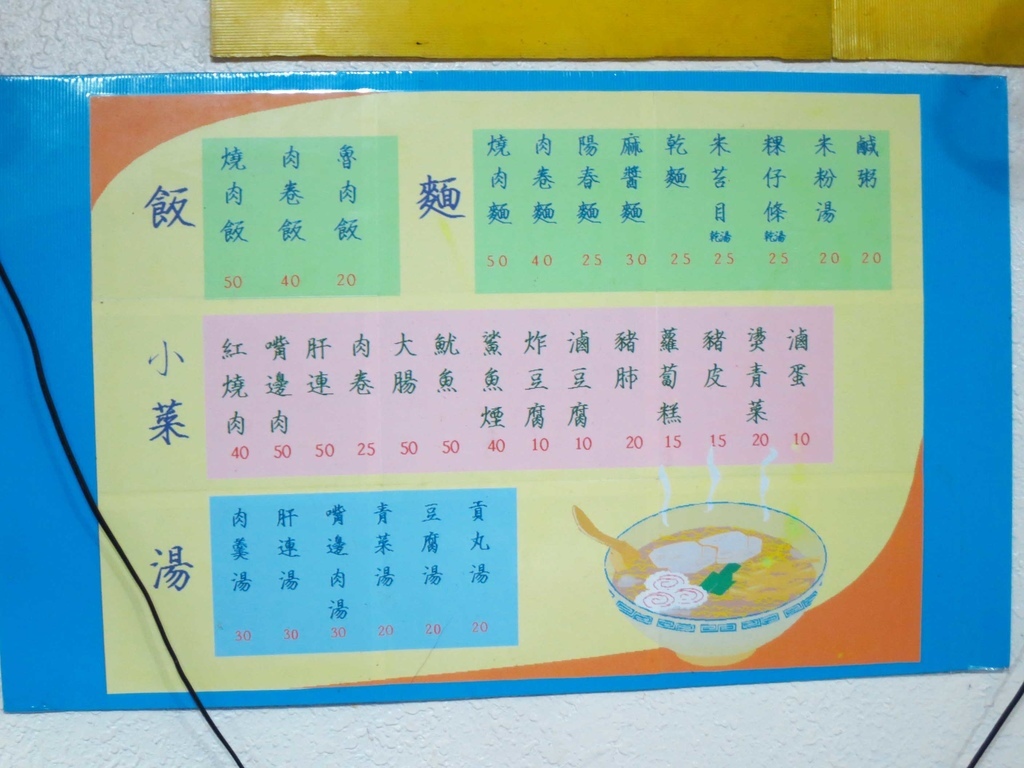 飯
燒肉飯 50
肉卷飯 40
魯肉飯 20
麵
燒肉麵 50
肉卷麵 40
陽春麵 25
麻醬麵 30
乾麵 25
米苔目 乾湯 25
粿仔條 乾湯 25
米粉湯 20
鹹粥 20
小菜
紅燒肉 40
嘴邊肉 50
肝連 50
肉卷 25
大腸 50
魷魚 50
鯊魚煙 40
炸豆腐 10
滷豆腐 10
豬肺 20
蘿蔔糕 15
豬皮 15
燙青菜 20
滷蛋 10
湯
肉羹湯 30
肝連湯 30
嘴邊肉湯 30
青菜湯 20
豆腐湯 20
貢丸湯 20